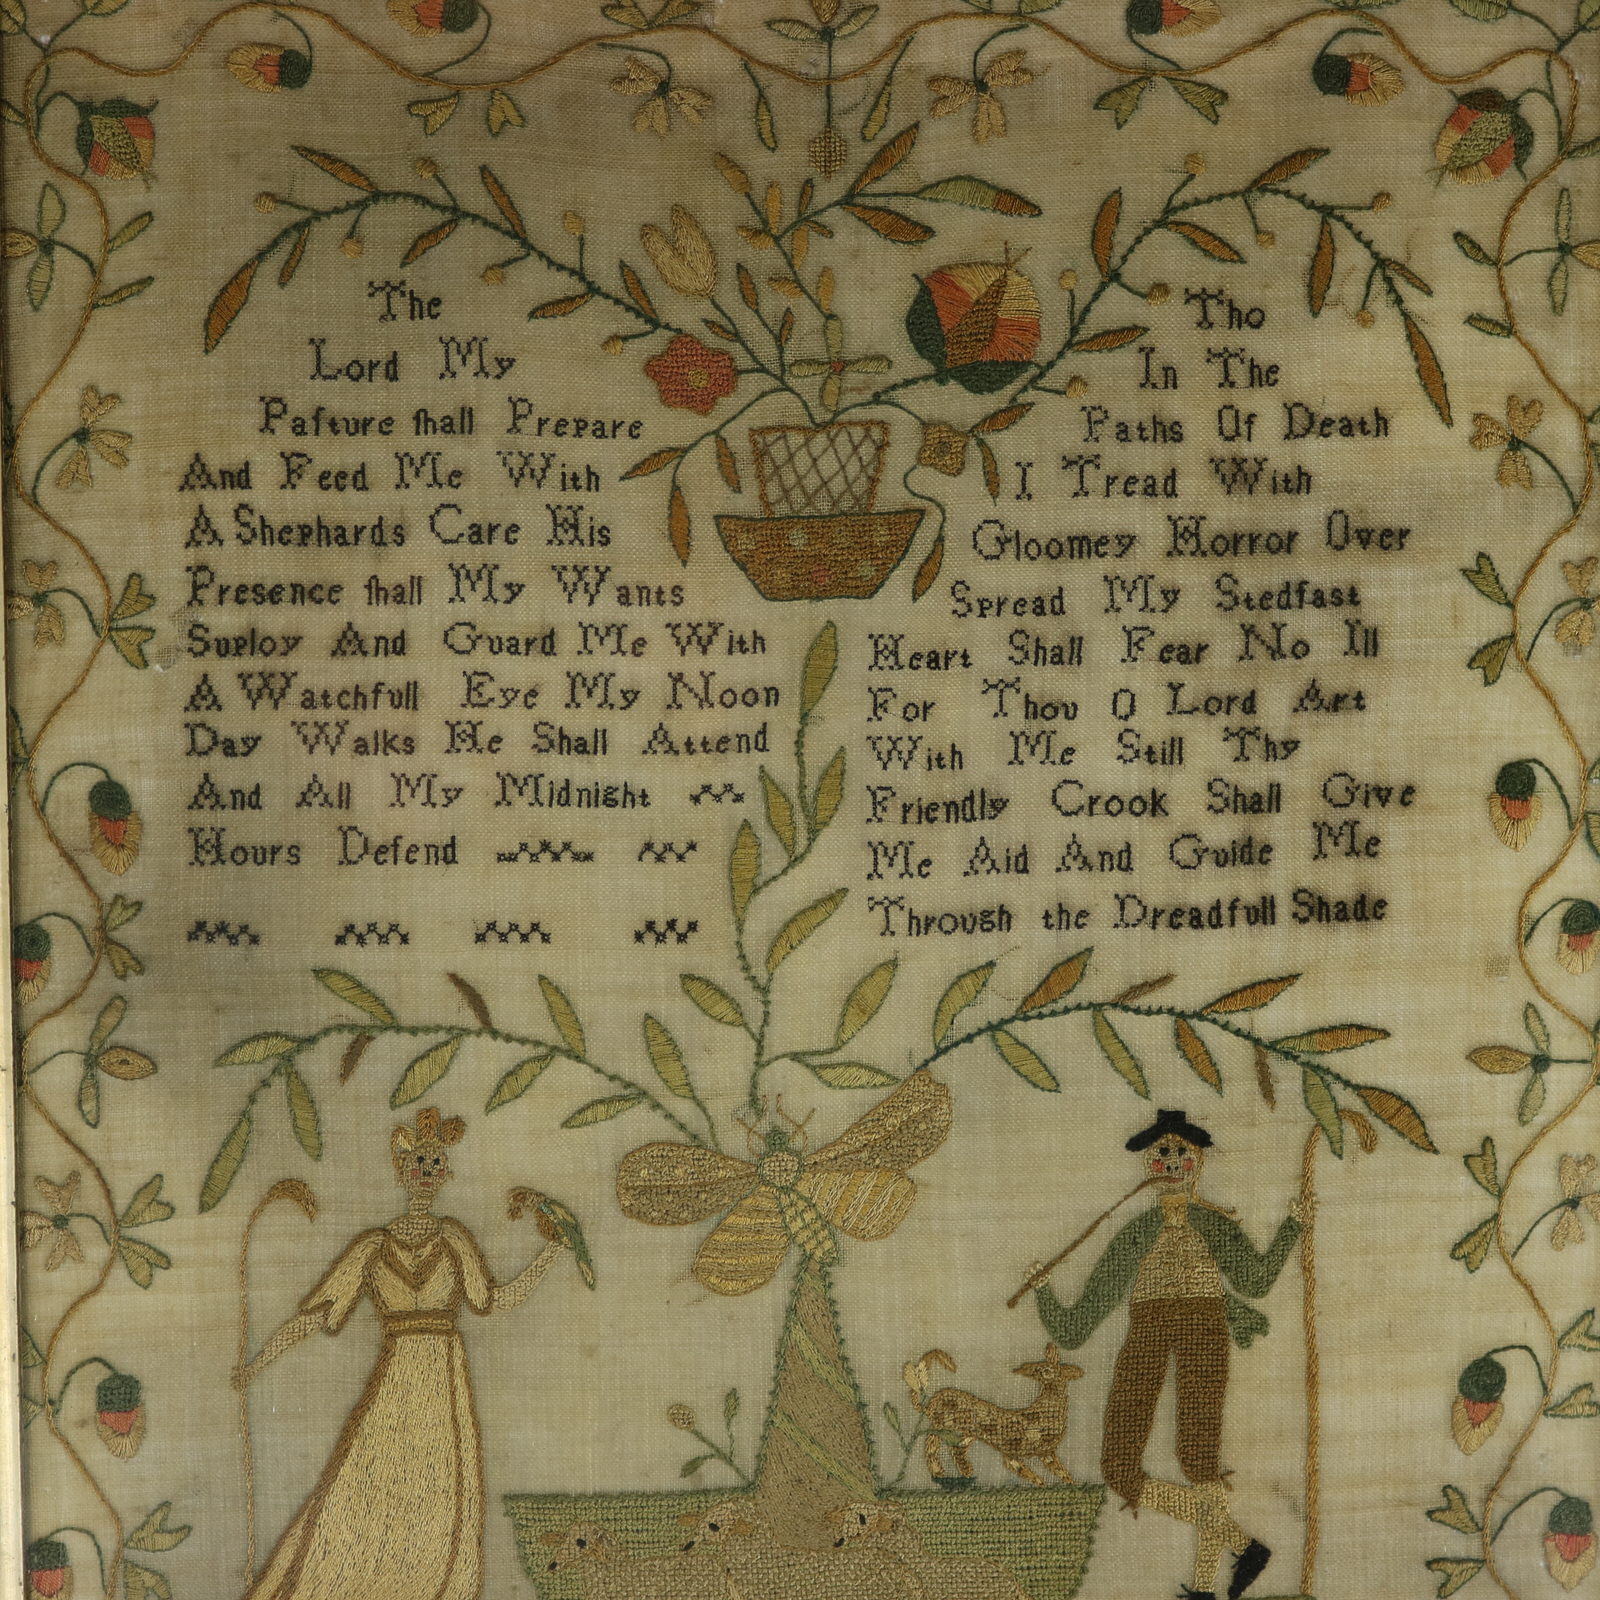 The
Lord My
Paſture ſhall Prepare
And Feed Me With
A Shephards Care His
Presence ſhall My Wants
Suploy And Guard Me With
A Watchfull Eye My Noon
Day Walks He Shall Attend
And All My Midnight
Hours Defend
Tho
In The
Paths Of Death
I Tread With
Gloomey Horror Over
Spread My Stedfast
Heart Shall Fear No Ill
For Thou O Lord Art
With Me Still Thy
Friendly Crook Shall Give
Me Aid And Guide Me
Through the Dreadfull Shade